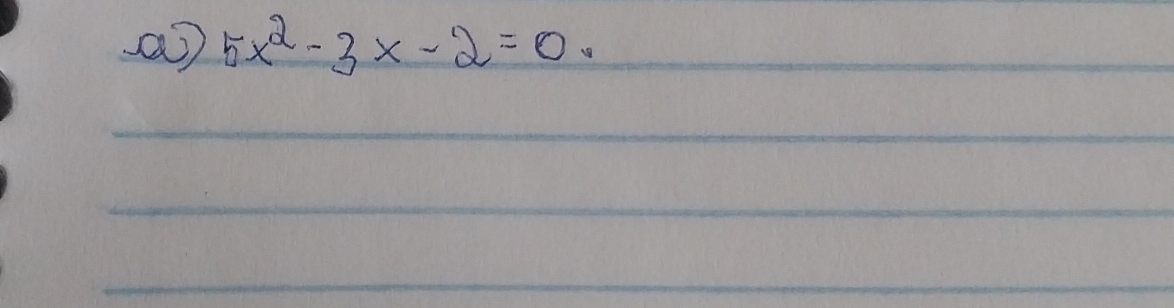 a) 5x² - 3x - 2 = 0.